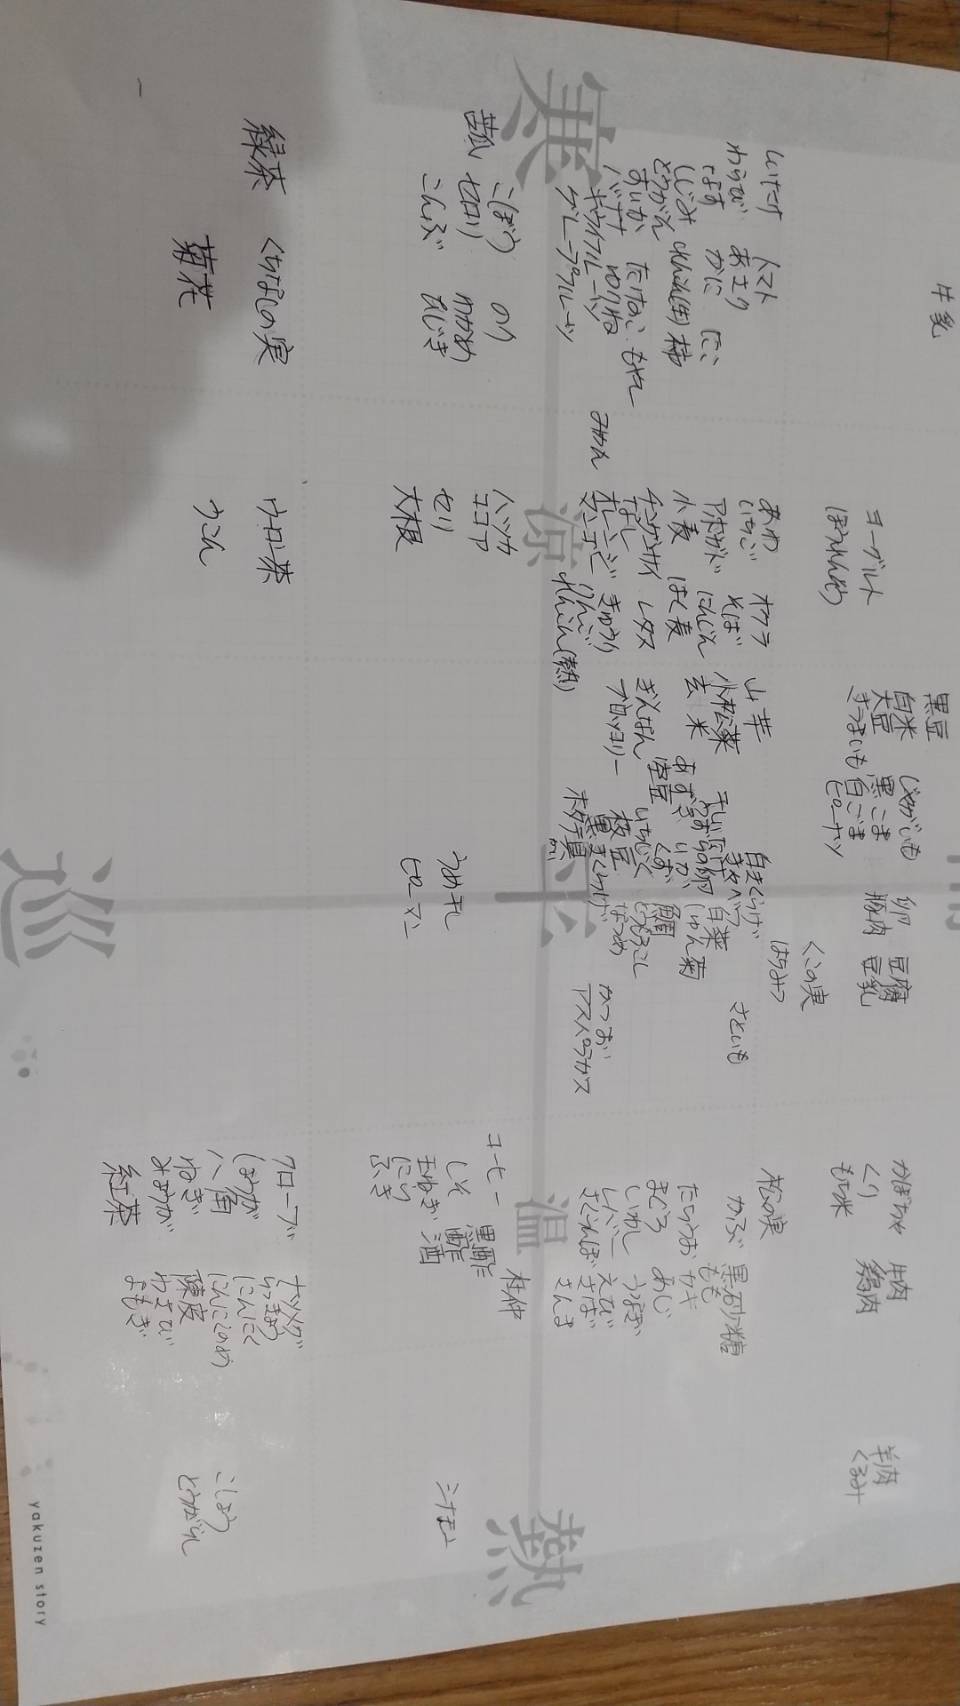 牛乳
しいたけ
わらび
なす
しじみ
とうがん
すいか
バナナ
キウイフルーツ
グレープフルーツ
トマト
あさり
かに
れんこん(生)
たけのこ
ゆりね
柿
もやし
寒
ごぼう
セロリ
こんぶ
苦瓜
のり
わかめ
ひじき
緑茶
くちなしの実
菊花
ヨーグルト
ほうれんそう
みかん
あわ
いちご
アボガド
小麦
チンゲンサイ
なし
オレンジ
マンゴー
オクラ
そば
にんじん
はく麦
レタス
きゅうり
りんご
れんこん(熱)
涼
ハッカ
ココア
セリ
大根
ウーロン茶
うこん
黒豆
白米
大豆
さつまいも
じゃがいも
黒ごま
白ごま
ピーナッツ
卵
豚肉
豆腐
豆乳
くこの実
はちみつ
山芋
小松菜
玄米
ぎんなん
ブロッコリー
干しいたけ
うずらの卵
あずき
いか
空豆
くず
いちじく
枝豆
黒きくらげ
ホタテ貝
白きくらげ
キャベツ
白菜
しゅん菊
鯛
とうもろこし
なつめ
さといも
かつお
アスパラガス
平
うめ干し
ピーマン
巡
かぼちゃ
くり
もち米
牛肉
鶏肉
松の実
かぶ
黒砂糖
もも
たちうお
カキ
まぐろ
あじ
いわし
うなぎ
レバー
えび
さくらんぼ
さば
さんま
温
コーヒー
しそ
玉ねぎ
にら
ふき
黒酢
酢
酒
杜仲
クローブ
しょうが
八角
ねぎ
みょうが
紅茶
ナツメグ
らっきょう
にんにく
にんにくのめ
陳皮
わさび
よもぎ
羊肉
くるみ
熱
シナモン
こしょう
とうがらし
yakuzen story